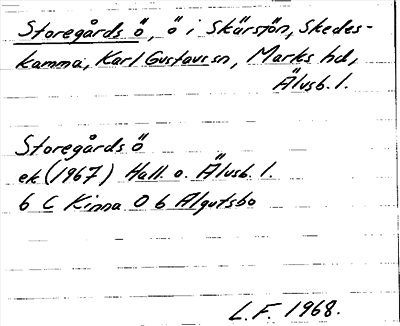 Storegårds ö, ö i Skärsjön, Skedes-
kamma, Karl Gustavs sn, Marks hd,
Älvsb. l.
Storegårds ö
ek (1967) Hall. o. Älvsb. l.
6 C Kinna 0 b Algutsbo
L.F. 1968.